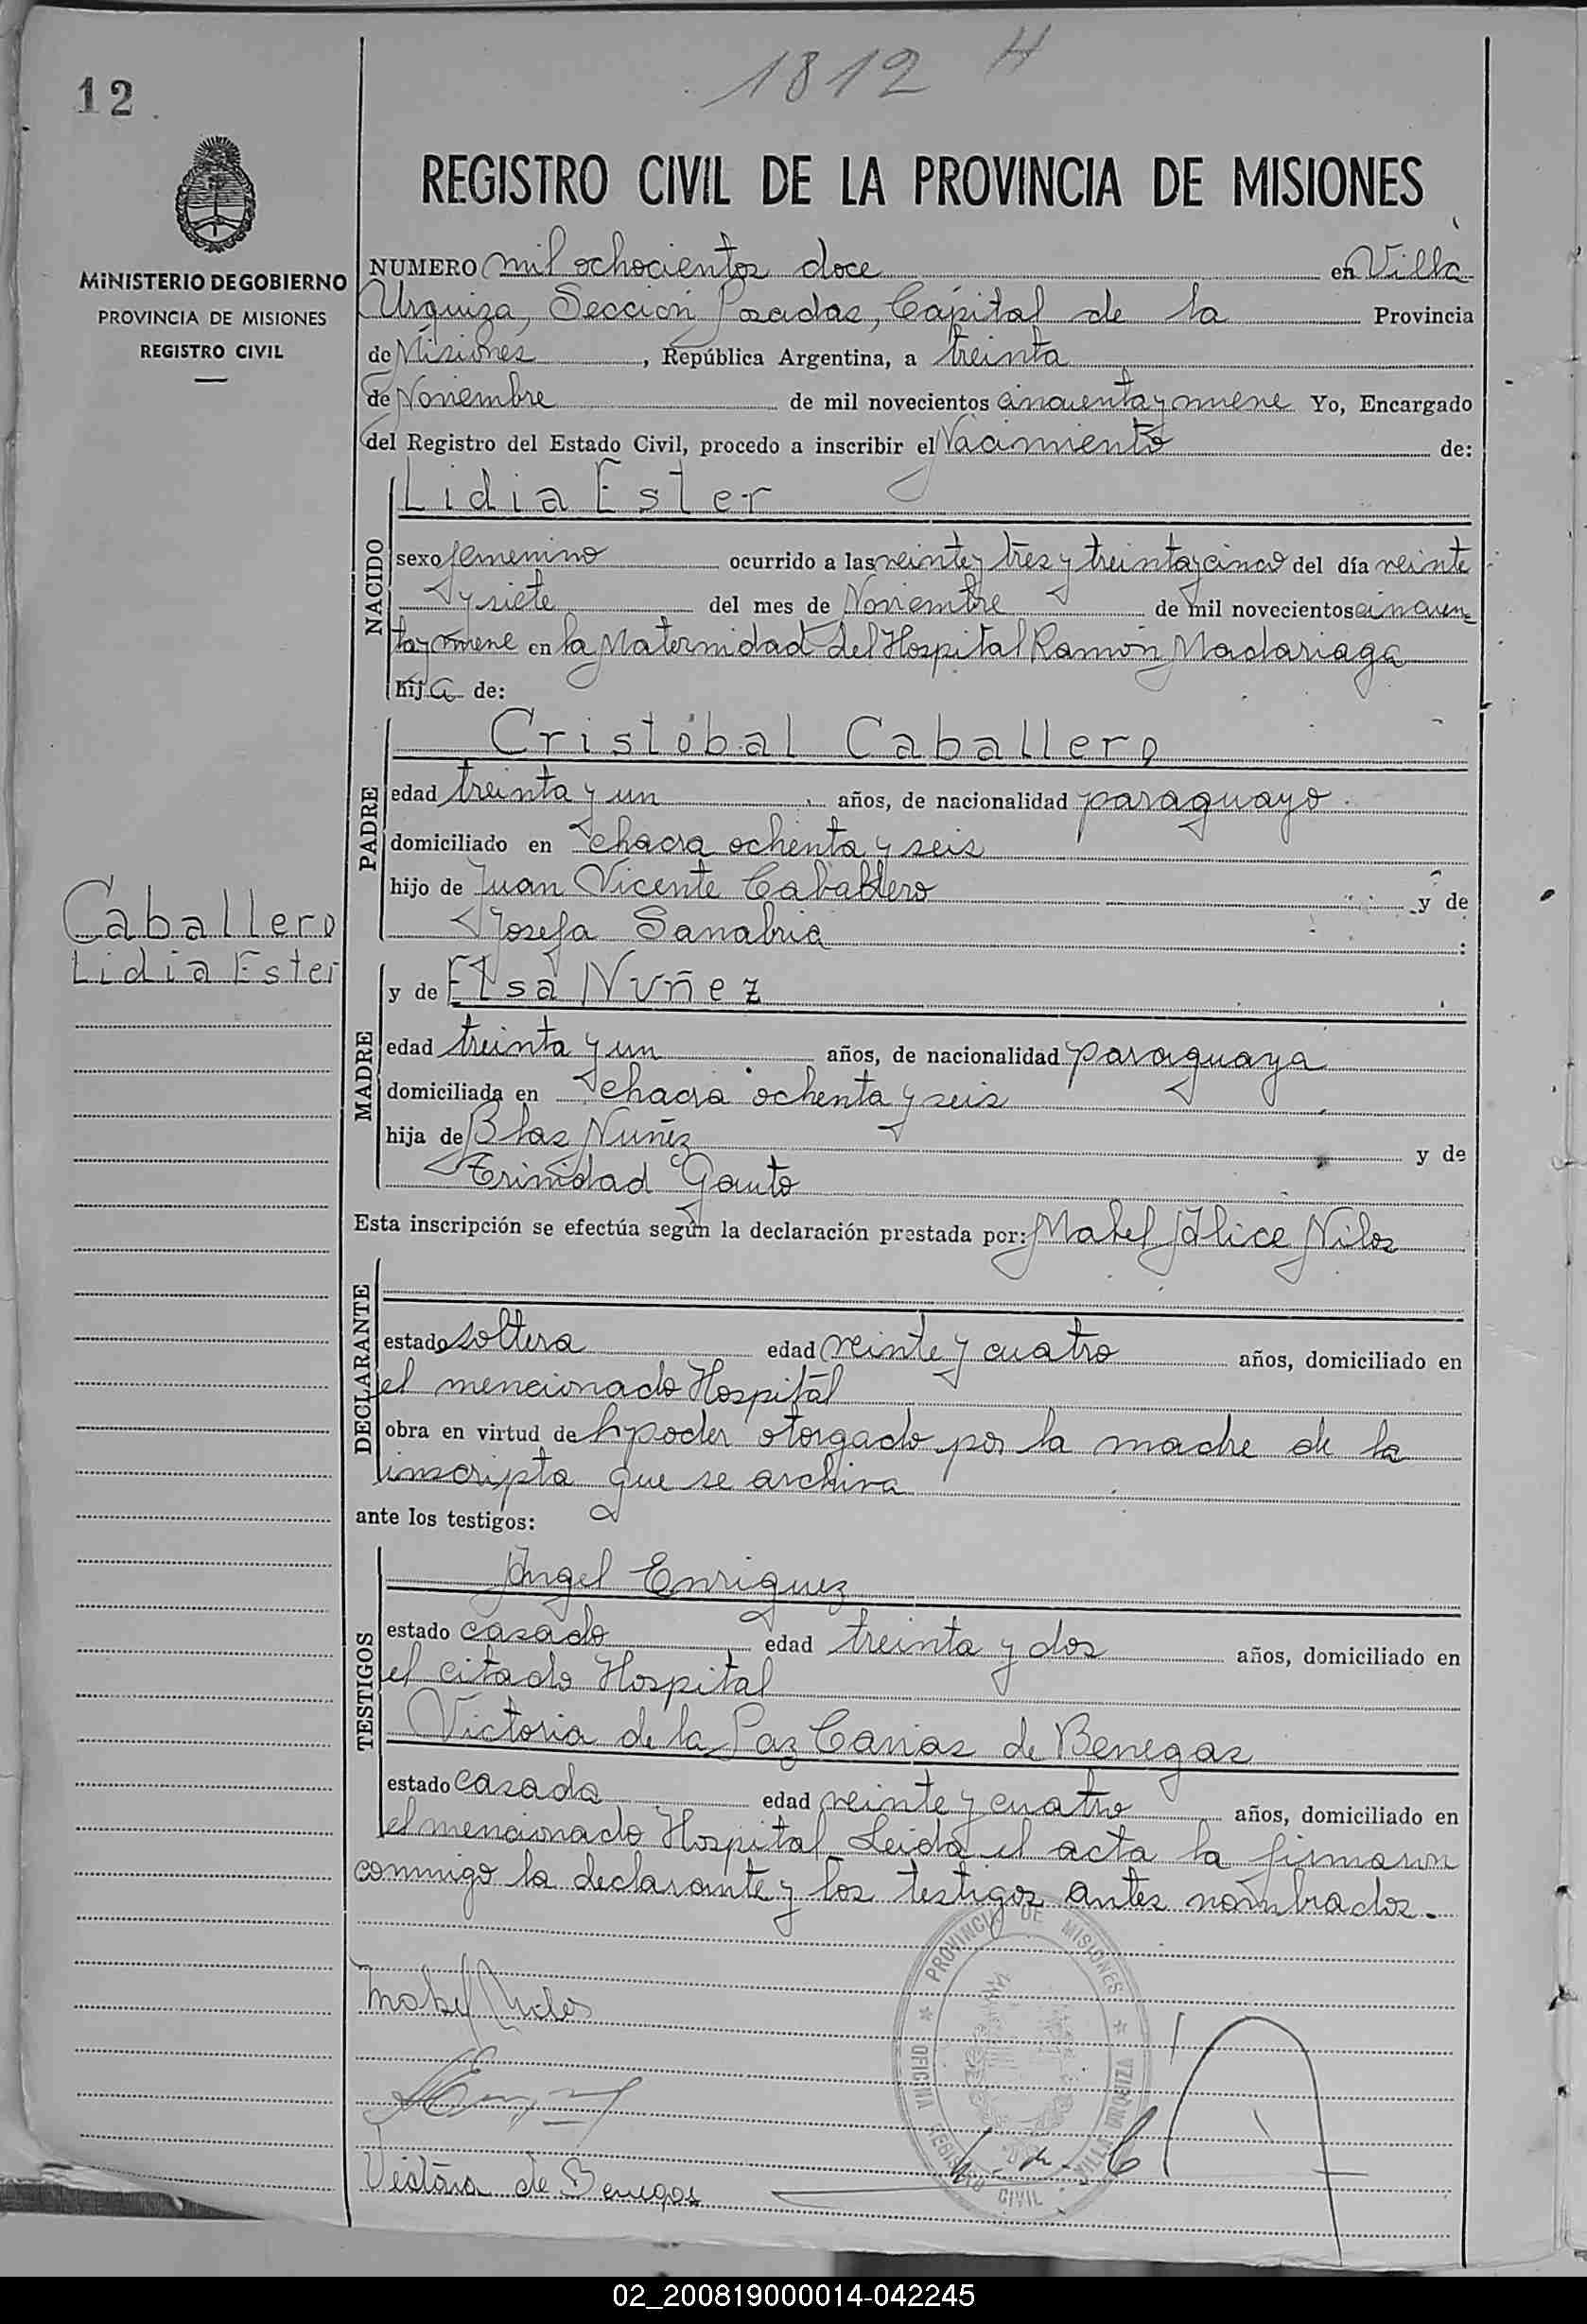 1812 H
12
MINISTERIO DE GOBIERNO
PROVINCIA DE MISIONES
REGISTRO CIVIL
REGISTRO CIVIL DE LA PROVINCIA DE MISIONES
NUMERO mil ochocientos doce en Villa
Urquiza, Sección Posadas, Cápital de la Provincia
de Misiones, República Argentina, a treinta
de Noviembre de mil novecientos cincuenta y nueve Yo, Encargado
del Registro del Estado Civil, procedo a inscribir el Nacimiento de:
NACIDO
Lidia Ester
sexo femenino ocurrido a las veinte y tres y treinta y cinco del día veinte
y siete del mes de Noviembre de mil novecientos cincuen
ta y nueve en la Maternidad del Hospital Ramón Madariaga
hija de:
PADRE
Cristóbal Caballero
edad treinta y un años, de nacionalidad paraguayo.
domiciliado en chacra ochenta y seis
hijo de Juan Vicente Caballero y de
Josefa Sanabria
Caballero
Lidia Ester
MADRE
y de Elsa Nuñez
edad treinta y un años, de nacionalidad paraguaya
domiciliada en chacra ochenta y seis
hija de Blas Nuñez y de
Trinidad Gauto
Esta inscripción se efectúa según la declaración prestada por: Mabel Alice Niloz
DECLARANTE
estado soltera edad veinte y cuatro años, domiciliado en
el mencionado Hospital
obra en virtud de poder otorgado por la madre de la
inscripta que se archiva
ante los testigos:
TESTIGOS
Angel Enriquez
estado casado edad treinta y dos años, domiciliado en
el citado Hospital
Victoria de la Paz de Benegas
estado casada edad veinte y cuatro años, domiciliado en
el mencionado Hospital Leida el acta la firmaron
conmigo la declarante y los testigos antes nombrados.-
PROVINCIA DE MISIONES
OFICINA REGISTRO CIVIL VILLA URQUIZA
Mabel
Victoria de Benegas
02_200819000014-042245